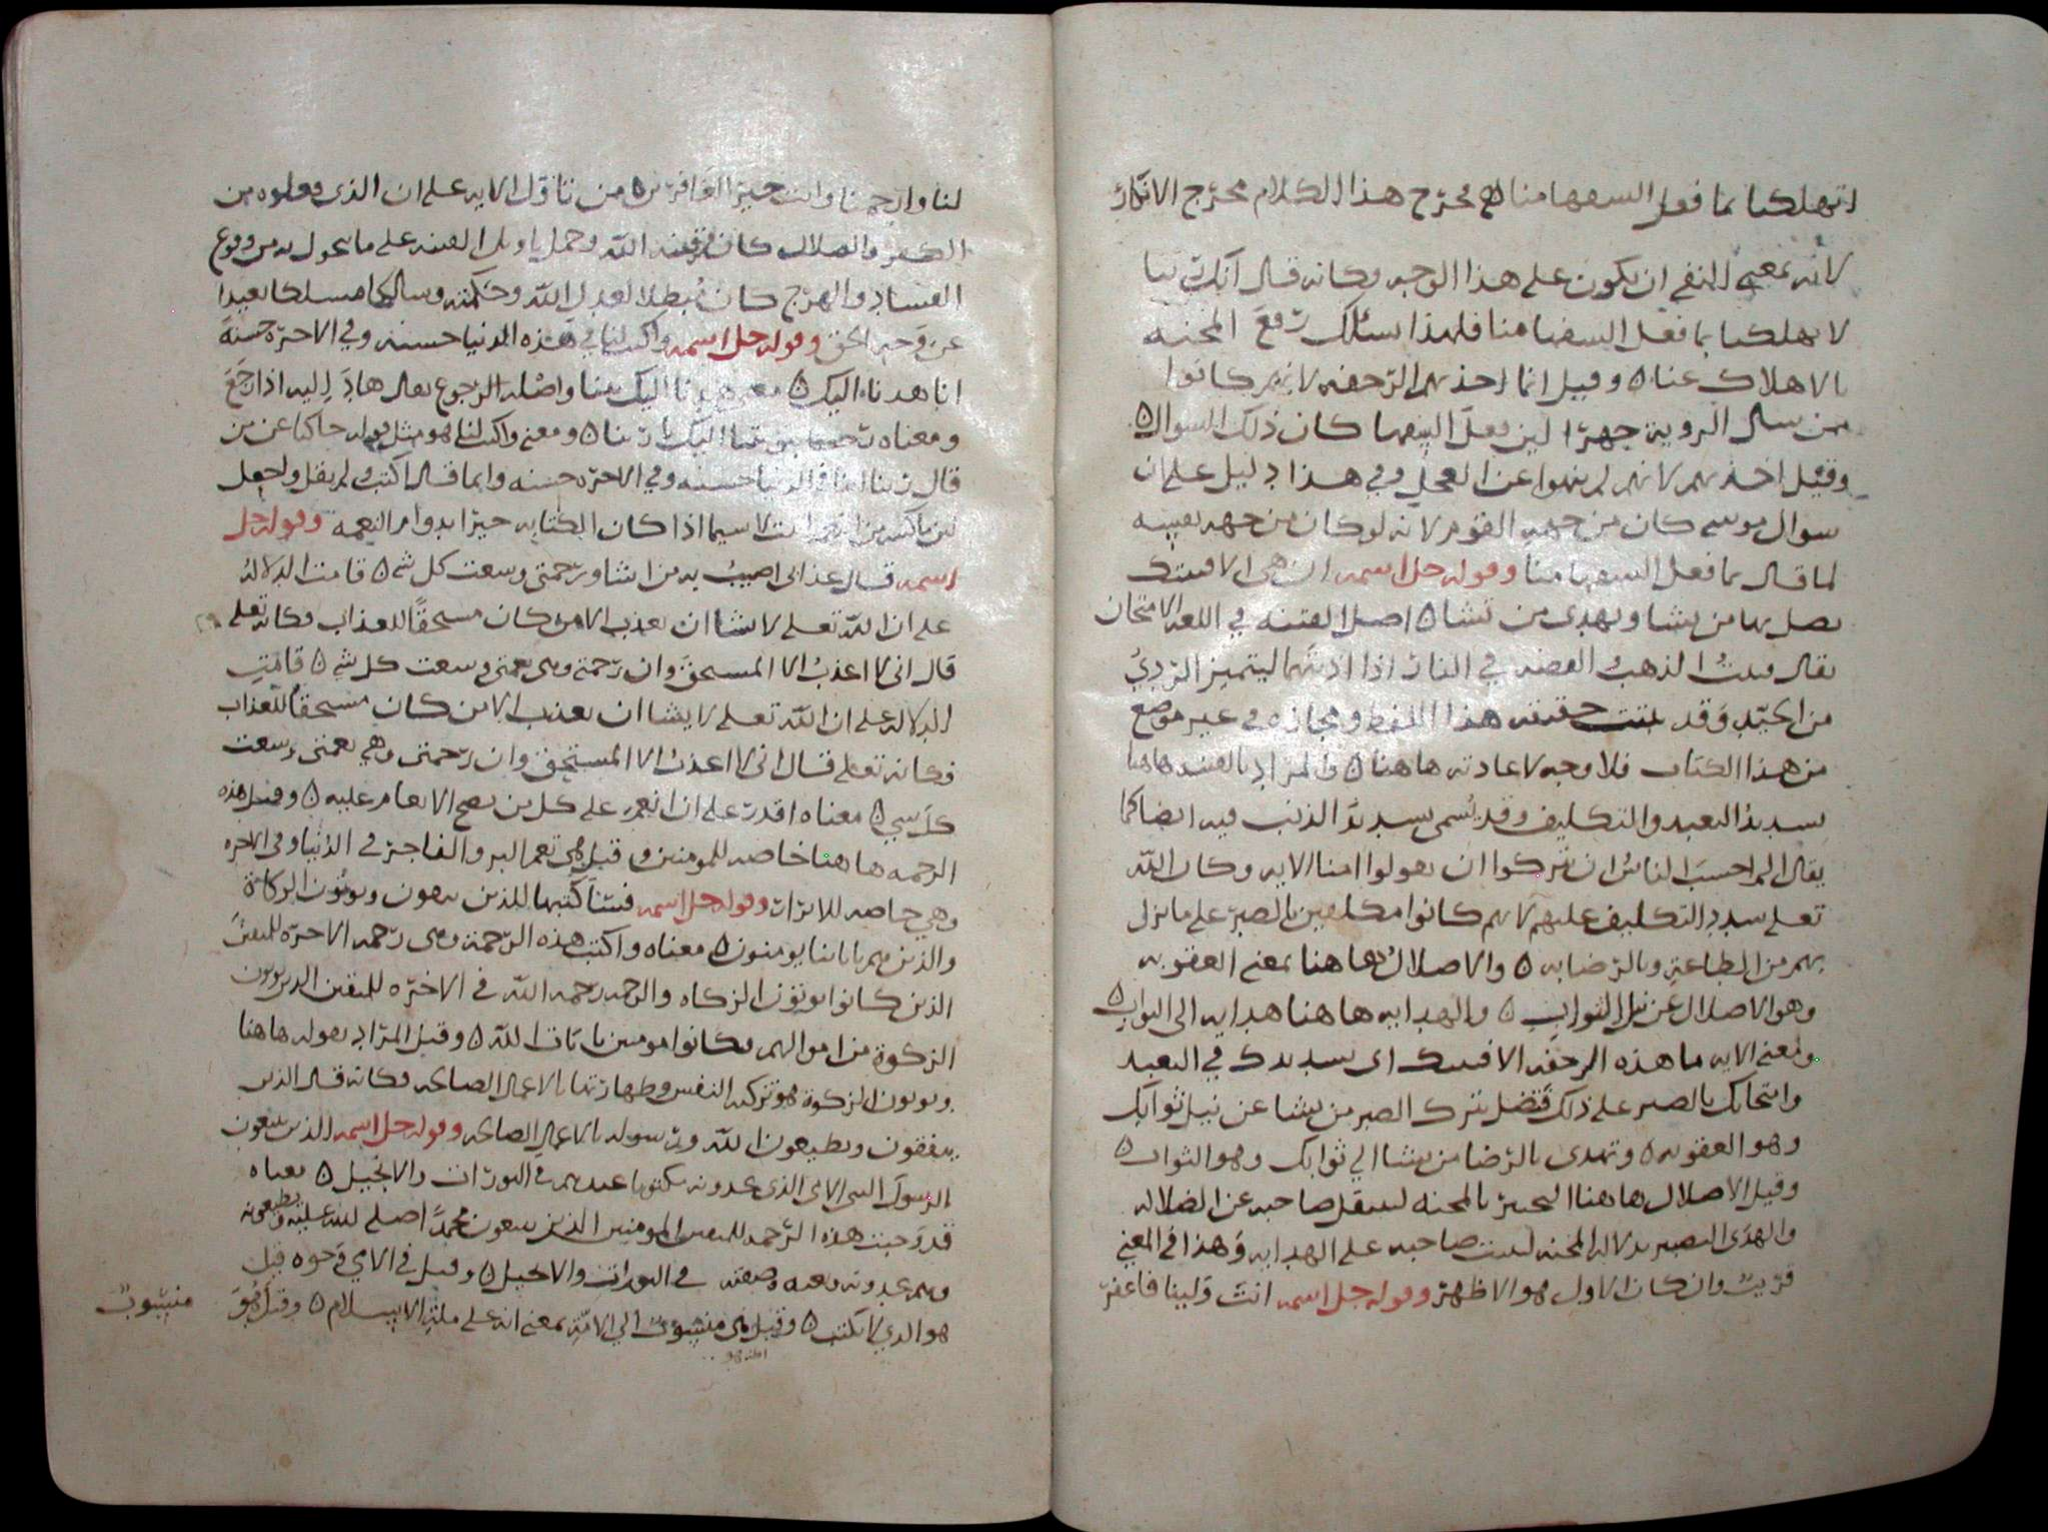 اتهلكنا بما فعل السفها منا ۵ مخرج هذا الكلام مخرج الانكار
لانه بمعنى النفي ان يكون على هذا الوجه وكانه قال انك ربنا
لا تهلكنا بما فعل السفها منا فلهذا نسئلك رفع المحنه
بالاهلاك عنا ۵ وقيل انما اخذتهم الرجفه لانهم كانوا
ممن سال الروية جهرا لين فعل السفها كان ذلك السوال ۵
وقيل اخذتهم لانهم لم ينهوا عن العجل وفي هذا دليل على ان
سوال موسى كان من جهه القوم لانه لو كان من جهه نفسه
لما قال بما فعل السفها منا وقوله جل اسمه ان هي الا فتنتك
تضل بها من تشا وتهدى من تشا ۵ اصل الفتنه في اللغه الامتحان
يقال فتنت الذهب والفضه في النار اذا اذبتهما ليتميز الردي
من الجيد وقد بينت حقيقه هذا اللفظ ومجازه في غير موضع
من هذا الكتاب فلا وجه لاعادته هاهنا ۵ والمراد بالفتنه هاهنا
تشديد التعبد والتكليف وقد تسمى تشديد الذنب فيه ايضا كما
يقال الم احسب الناس ان يتركوا ان يقولوا امنا الايه وكان الله
تعلى شدد التكليف عليهم لانهم كانوا مكلفين بالصبر على ما نزل
بهم من الطاعة وبالرضا به ۵ والاضلال هاهنا بمعنى العقوبه
وهو الاضلال عن نيل الثواب ۵ والهدايه هاهنا هدايه الى الثواب ۵
ومعنى الايه ما هذه الرجفه الا فتنتك اى تشديدك في التعبد
وامتحانك بالصبر على ذلك فتضل بترك الصبر من تشا عن نيل ثوابك
وهو العقوبه ۵ وتهدى بالرضا من تشا الى ثوابك وهو الثواب ۵
وقيل الاضلال هاهنا التحيز بالمحنه لينتقل صاحبه عن الضلاله
والهدى التبصير بدلاله المحنه ليثبت صاحبه على الهدايه وهذا في المعنى
قريب وان كان الاول هو الاظهر وقوله جل اسمه انت ولينا فاغفر
لنا وارحمنا وانت خير الغافرين ۵ من تاول الايه على ان الذى فعلوه من
الكفر والضلال كان فتنه الله وحمل تاويل الفتنه على ما تحول به من وقوع
الفساد والهرج كان مبطلا لعدل الله وحكمته وسالكا مسلكا بعيدا
عن وجه الحق وقوله جل اسمه واكتب لنا في هذه الدنيا حسنه وفي الاخره حسنه
انا هدنا اليك ۵ معنى هدنا اليك تبنا واصله الرجوع يقال هاد اليه اذا رجع
ومعناه رجعنا بتوبتنا اليك يا ربنا ۵ ومعنى واكتب لنا هو مثل قوله حاكيا عن من
قال ربنا اتنا في الدنيا حسنه وفي الاخره حسنه وانما قال اكتب ولم يقل واجعل
لان ما كتب من الخير اثبت لا سيما اذا كان الكتابه خيرا بدوام النعمه وقوله جل
اسمه قال عذابى اصيب به من اشا ورحمتى وسعت كل شى ۵ قامت الدلاله
على ان الله تعلى لا يشا ان يعذب الا من كان مستحقا للعذاب فكانه تعلى
قال انى لا اعذب الا المستحق وان رحمتى وهى نعمتى وسعت كل شى ۵ قامت
الدلاله على ان الله تعلى لا يشا ان يعذب الا من كان مستحقا للعذاب
فكانه تعلى قال انى لا اعذب الا المستحق وان رحمتى وهي نعمتى وسعت
كل شي ۵ معناه اقدر على ان انعم على كل من يصح الانعام عليه ۵ وقيل هذه
الرحمه هاهنا خاصه للمومنين وقيل هى تعم البر والفاجر في الدنيا وفى الاخره
وهي خاصه للابرار وقوله جل اسمه فسناكتبها للذين يتقون ويوتون الزكاة
والذين هم باياتنا يومنون ۵ معناه واكتب هذه الرحمة وهى رحمه الاخره للمتقين
الذين كانوا يوتون الزكاه والرحمه رحمه الله في الاخره للمتقين الذين يوتون
الزكوة من اموالهم وكانوا مومنين بايات الله ۵ وقيل المراد بقوله هاهنا
ويوتون الزكوة هو تزكيه النفس وطهارتها بالاعمال الصالحه فكانه قال الذين
يتفقون ويطيعون الله ورسوله بالاعمال الصالحه وقوله جل اسمه الذين يتبعون
الرسول النبى الامى الذى يجدونه مكتوبا عندهم في التورات والانجيل ۵ معناه
قد وجبت هذه الرحمه للمتقين المومنين الذين يتبعون محمدا صلى الله عليه ويطيعونه
وهم يجدونه ونعته وصفته في التورات والانجيل ۵ وقيل في الامي وجوه قيل
هو الذي لا يكتب ۵ وقيل هى منسوب الى الامه بمعنى انه على مله الاسلام ۵ وقيل هو
منسوب